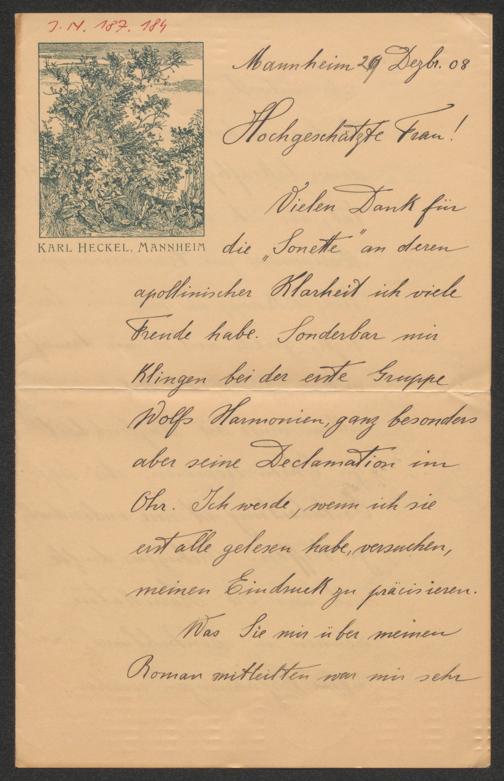 J. N. 187. 184
Mannheim 29 Dezbr. 08
KARL HECKEL, MANNHEIM
Hochgeschätzte Frau!
Vielen Dank für
die „Sonette" an deren
apollinischer Klarheit ich viele
Freude habe. Sonderbar mir
klingen bei der erste Gruppe
Wolfs Harmonien, ganz besonders
aber seine Declamation im
Ohr. Ich werde, wenn ich sie
erst alle gelesen habe, versuchen,
meinen Eindruck zu präcisieren.
Was Sie mir über meinen
Roman mitteilten war mir sehr